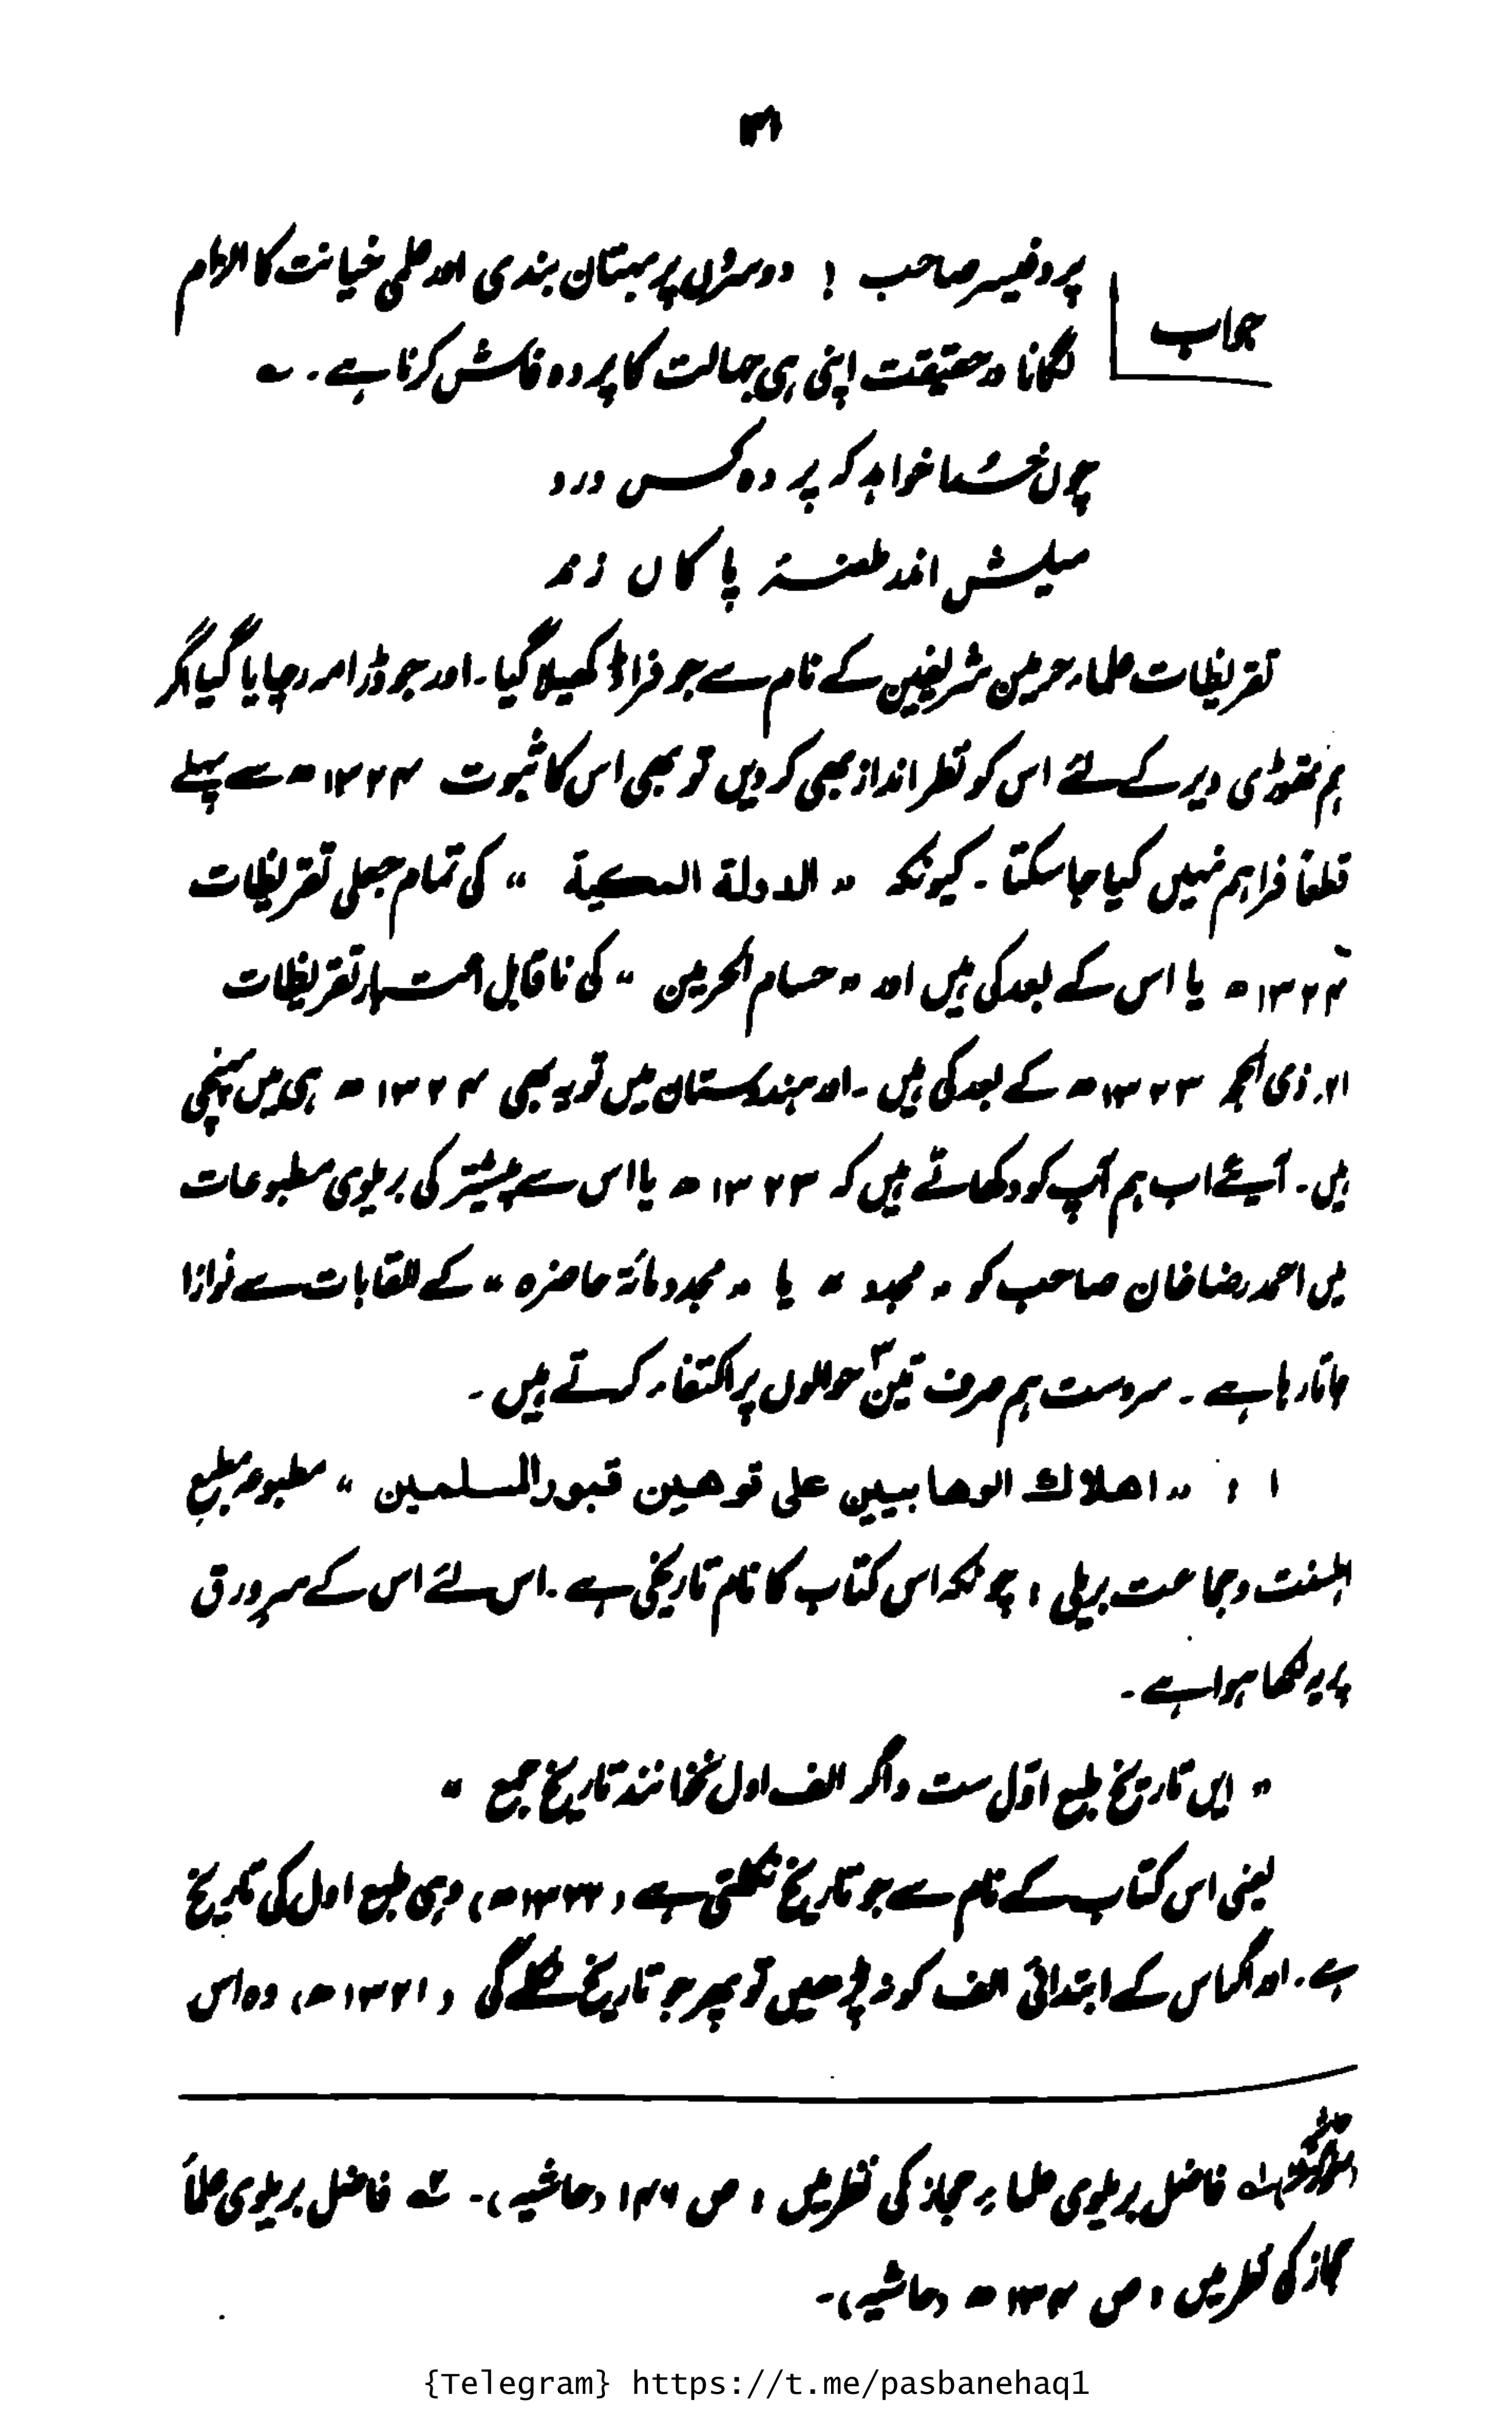 جواب
پروفیسر صاحب ! دوسروں پر بہتان بندی اور علمی خیانت کا الزام
لگانا درحقیقت اپنی ہی جہالت کا پردہ فاش کرنا ہے۔ ؎
چوں خدا خواہد کہ پردہ کس درد
میلش اندر طعنۂ پاکاں زند
تقریظات علماء حرمین شریفین کے نام سے جو فراڈ کھیلا گیا۔ اور جو ڈرامہ رچایا گیا اگر
ہم تھوڑی دیر کے لئے اس کو نظر انداز بھی کر دیں تو بھی اس کا ثبوت ۱۳۲۴ھ سے پہلے
قطعاً فراہم نہیں کیا جا سکتا۔ کیونکہ ” الدولة المكية “ کی تمام جعلی تقریظات
۱۳۲۴ھ یا اس کے بعد کی ہیں اور ” حسام الحرمین “ کی ناقابل اعتبار تقریظات
ذی الحجہ ۱۳۲۳ھ کے بعد کی ہیں۔ اور ہندوستان میں تو یہ بھی ۱۳۲۴ھ ہی میں پہنچی
ہیں۔ آئیے اب ہم آپ کو دکھاتے ہیں کہ ۱۳۲۳ھ یا اس سے پیشتر کی بریلوی مطبوعات
میں احمد رضا خان صاحب کو ” مجدد “ یا ” مجدد مائۃ حاضرہ “ کے القابات سے نوازا
جاتا رہا ہے۔ سردست ہم صرف تین حوالوں پر اکتفاء کرتے ہیں۔
۱ : ” اهلاك الوهابيين على توهين قبور المسلمين “ مطبوعہ مطبع
اہلسنت وجماعت بریلی ، چونکہ اس کتاب کا نام تاریخی ہے۔ اس لئے اس کے سرورق
پر یہ لکھا ہوا ہے۔
” ایں تاریخ طبع اوّل ست واگر الف اول نخوانند تاریخ جمع “
یعنی اس کتاب کے نام سے جو تاریخ نکلتی ہے (۱۳۲۲ھ) وہی طبع اول کی تاریخ
ہے۔ اور اگر اس کے ابتدائی الف کو نہ پڑھیں تو پھر جو تاریخ نکلے گی (۱۳۲۱ھ) وہ اس
فاضل بریلوی علماء حجاز کی نظر میں ، ص ۱۴۶ (حاشیہ)۔ ۲ فاضل بریلوی علماء
حجاز کی نظر میں ، ص (حاشیہ)۔
{Telegram} https://t.me/pasbanehaq1